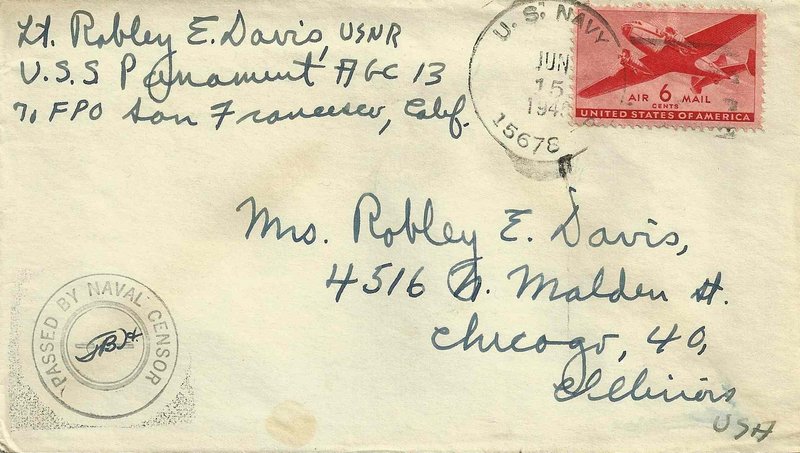 Lt. Robley E. Davis, USNR
U.S.S Panament AGC 13
℅ FPO San Francesco, Calif.
U. S. NAVY
JUN
15
194
15678
AIR 6 MAIL
CENTS
UNITED STATES OF AMERICA
Mrs. Robley E. Davis,
4516 N. Malden St.
Chicago, 40,
Illinois
USA
PASSED BY NAVAL CENSOR